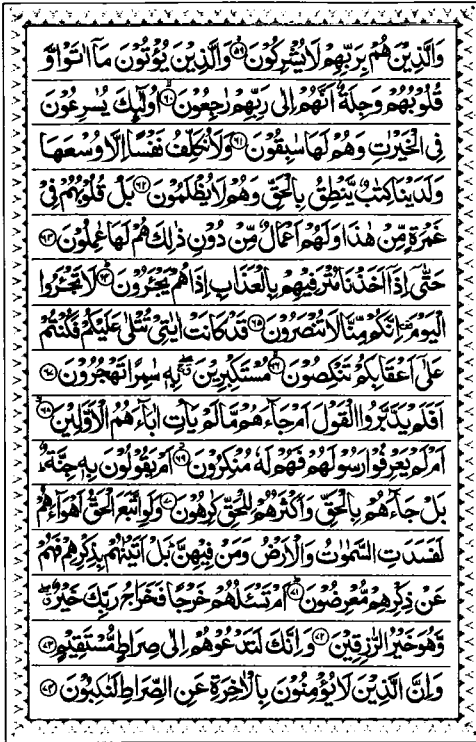 وَالَّذِيْنَ هُمْ بِرَبِّهِمْ لَا يُشْرِكُوْنَ ۙ﴿۵۹﴾ وَالَّذِيْنَ يُؤْتُوْنَ مَاۤ اٰتَوْا وَّ
قُلُوْبُهُمْ وَجِلَةٌ اَنَّهُمْ اِلٰى رَبِّهِمْ رٰجِعُوْنَ ۙ﴿۶۰﴾ اُولٰٓئِكَ يُسٰرِعُوْنَ
فِى الْخَيْرٰتِ وَهُمْ لَهَا سٰبِقُوْنَ ﴿۶۱﴾ وَلَا نُكَلِّفُ نَفْسًا اِلَّا وُسْعَهَا
وَلَدَيْنَا كِتٰبٌ يَّنْطِقُ بِالْحَقِّ وَهُمْ لَا يُظْلَمُوْنَ ﴿۶۲﴾ بَلْ قُلُوْبُهُمْ فِىْ
غَمْرَةٍ مِّنْ هٰذَا وَلَهُمْ اَعْمَالٌ مِّنْ دُوْنِ ذٰلِكَ هُمْ لَهَا عٰمِلُوْنَ ﴿۶۳﴾
حَتّٰىۤ اِذَاۤ اَخَذْنَا مُتْرَفِيْهِمْ بِالْعَذَابِ اِذَا هُمْ يَجْـَٔرُوْنَ ؕ﴿۶۴﴾ لَا تَجْـَٔرُوا
الْيَوْمَ اِنَّكُمْ مِّنَّا لَا تُنْصَرُوْنَ ﴿۶۵﴾ قَدْ كَانَتْ اٰيٰتِىْ تُتْلٰى عَلَيْكُمْ فَكُنْتُمْ
عَلٰٓى اَعْقَابِكُمْ تَنْكِصُوْنَ ۙ﴿۶۶﴾ مُسْتَكْبِرِيْنَ بِهٖ سٰمِرًا تَهْجُرُوْنَ ﴿۶۷﴾
اَفَلَمْ يَدَّبَّرُوا الْقَوْلَ اَمْ جَآءَهُمْ مَّا لَمْ يَاْتِ اٰبَآءَهُمُ الْاَوَّلِيْنَ ۫﴿۶۸﴾
اَمْ لَمْ يَعْرِفُوْا رَسُوْلَهُمْ فَهُمْ لَهٗ مُنْكِرُوْنَ ۫﴿۶۹﴾ اَمْ يَقُوْلُوْنَ بِهٖ جِنَّةٌ ؕ
بَلْ جَآءَهُمْ بِالْحَقِّ وَاَكْثَرُهُمْ لِلْحَقِّ كٰرِهُوْنَ ﴿۷۰﴾ وَلَوِ اتَّبَعَ الْحَقُّ اَهْوَآءَهُمْ
لَفَسَدَتِ السَّمٰوٰتُ وَالْاَرْضُ وَمَنْ فِيْهِنَّ ؕ بَلْ اَتَيْنٰهُمْ بِذِكْرِهِمْ فَهُمْ
عَنْ ذِكْرِهِمْ مُّعْرِضُوْنَ ؕ﴿۷۱﴾ اَمْ تَسْـَٔلُهُمْ خَرْجًا فَخَرَاجُ رَبِّكَ خَيْرٌ ۖ
وَّهُوَ خَيْرُ الرّٰزِقِيْنَ ﴿۷۲﴾ وَاِنَّكَ لَتَدْعُوْهُمْ اِلٰى صِرَاطٍ مُّسْتَقِيْمٍ ﴿۷۳﴾
وَاِنَّ الَّذِيْنَ لَا يُؤْمِنُوْنَ بِالْاٰخِرَةِ عَنِ الصِّرَاطِ لَنٰكِبُوْنَ ﴿۷۴﴾